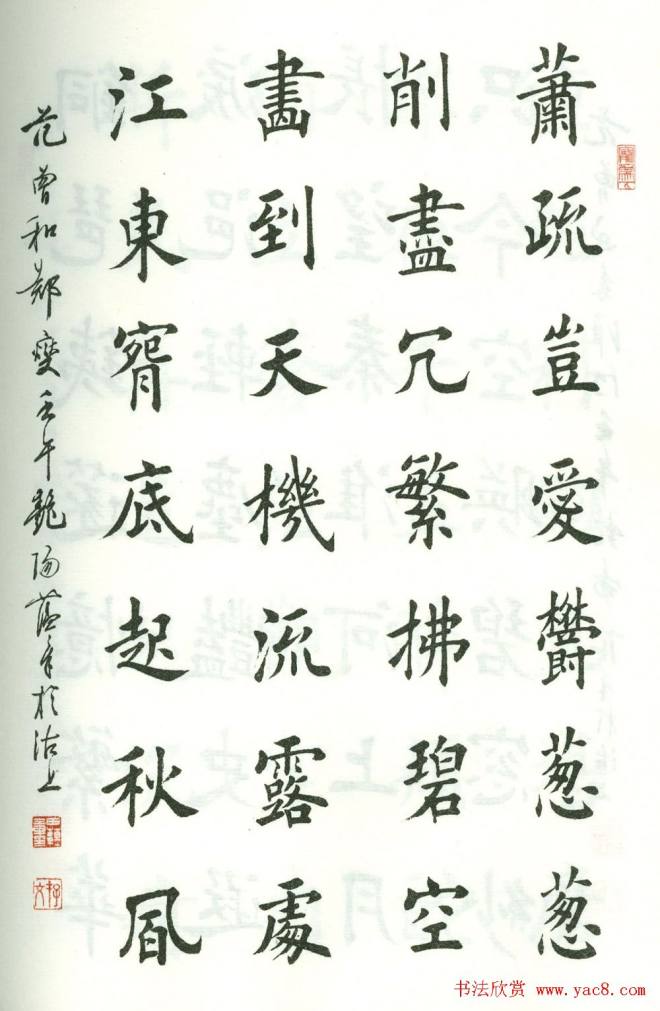 蕭疏豈愛鬱葱葱
削盡冗繁拂碧空
畫到天機流露處
江東寳底起秋風
范曾和鄭燮壬午於沽上
书法欣赏 www.yac8.com